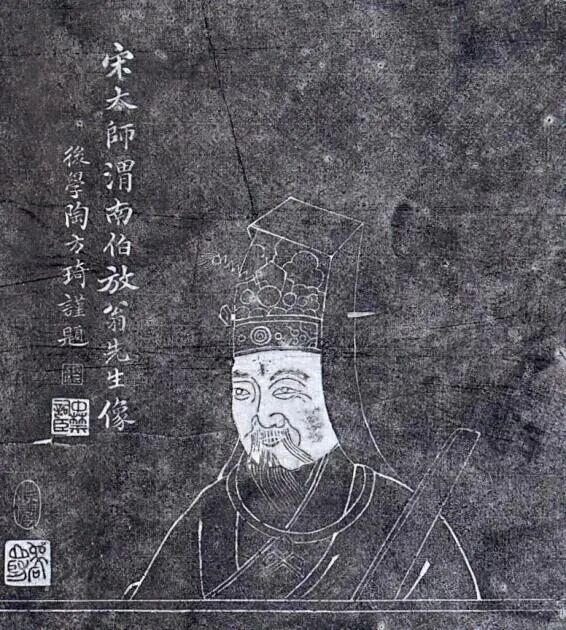 宋太師渭南伯放翁先生像
後學陶方琦謹題